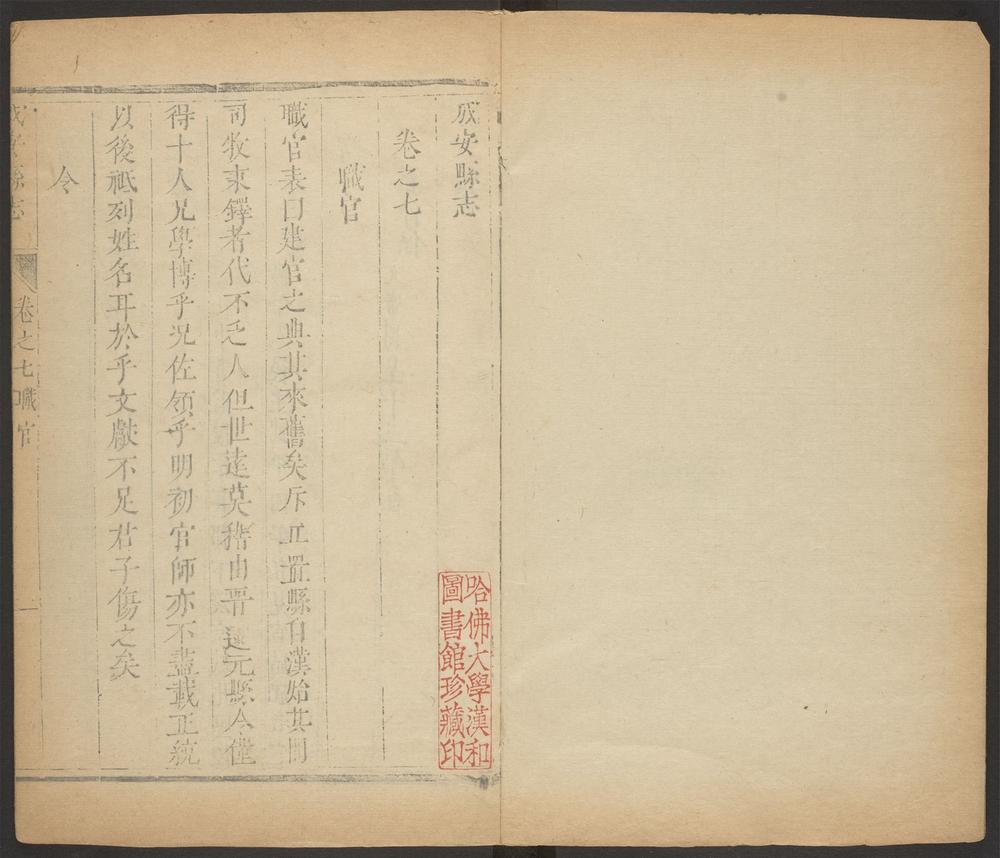 成安縣志
卷之七
職官
職官表曰建官之典其來舊矣斥丘置縣自漢始其間
司牧秉鐸者代不乏人但世逺莫稽由晋迄元縣令僅
得十人兄學博乎況佐領乎明初官師亦不盡載正統
以後祗列姓名耳於乎文獻不足君子傷之矣
令
成安縣志
卷之七職官
一
哈佛大學漢和
圖書館珍藏印